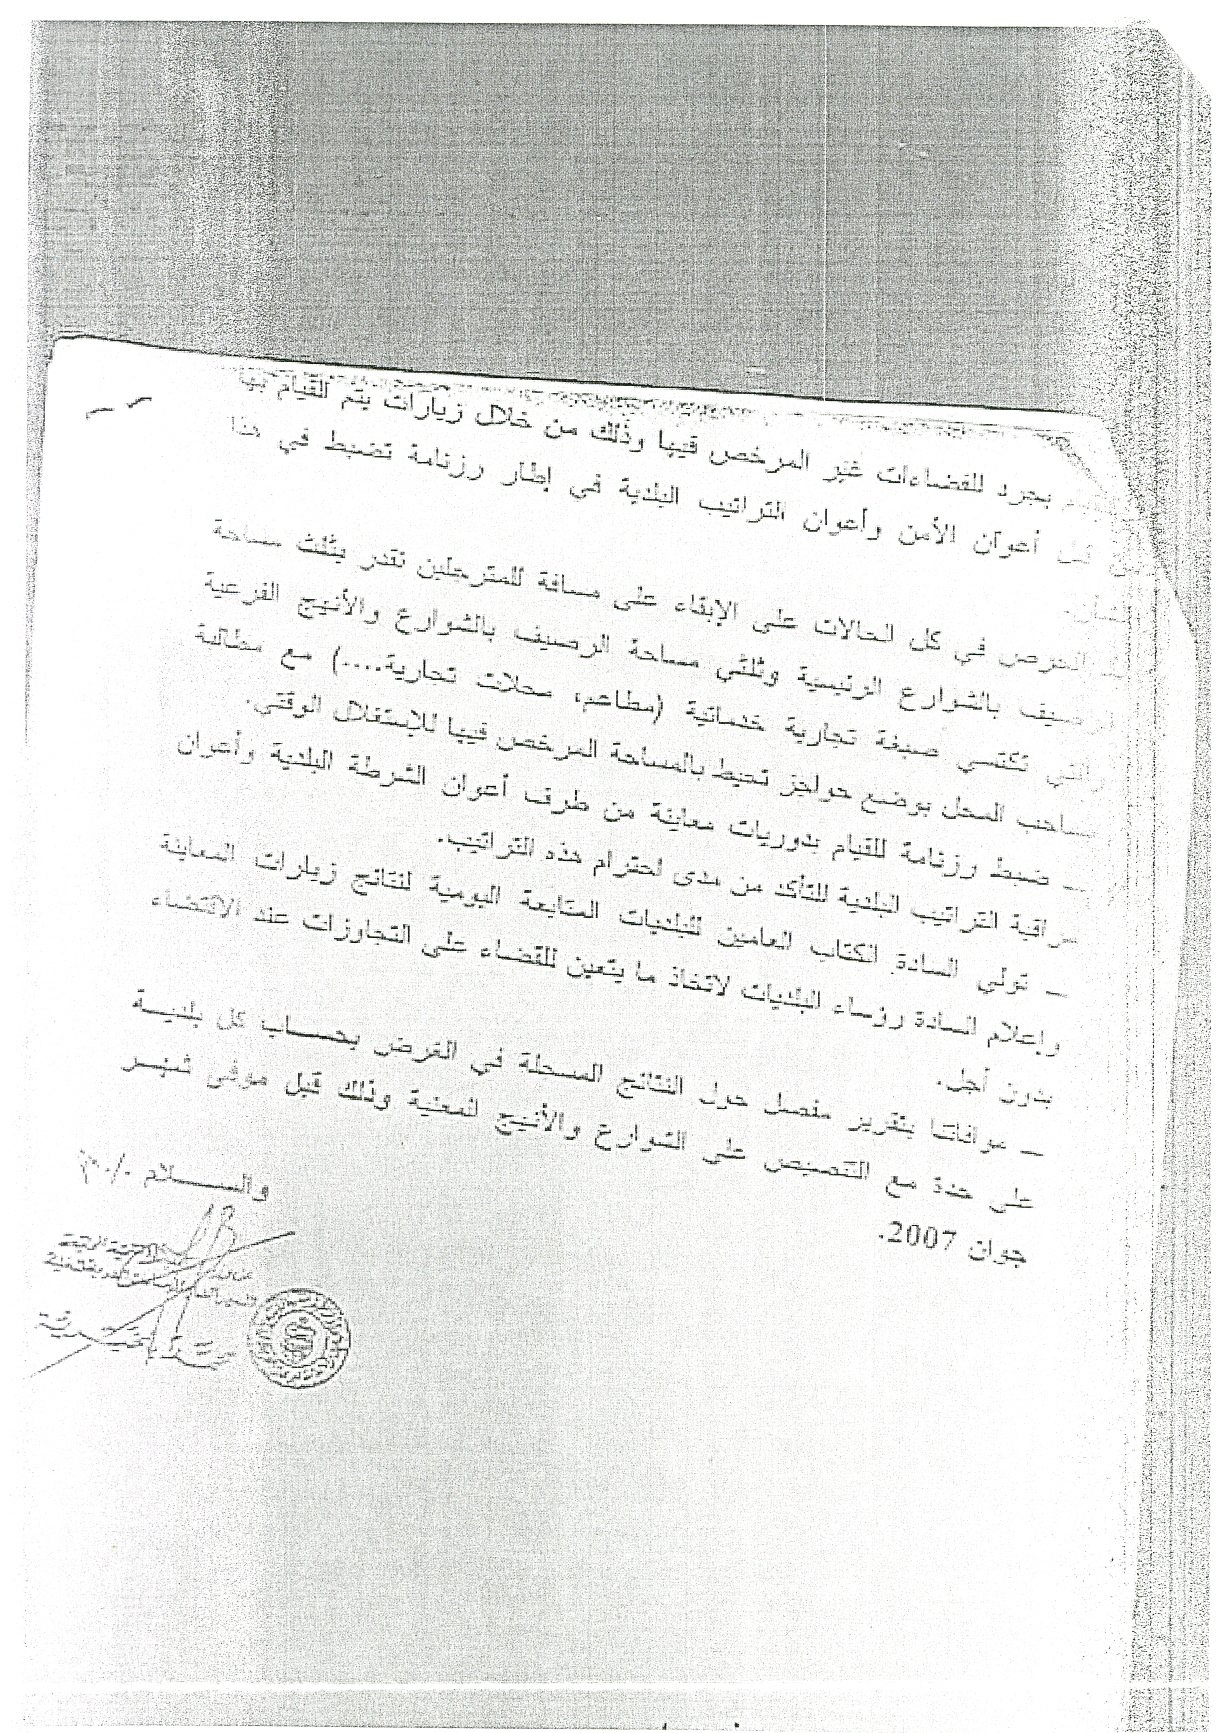 بجرد للفضاءات غير المرخص فيها وذلك من خلال زيارات يتم القيام بها
أعوان الأمن وأعوان التراتيب البلدية في إطار رزنامة تضبط في هذا
الشأن.
الحرص في كل الحالات على الإبقاء على مسافة للمترجلين تقدر بثلث مساحة
الرصيف بالشوارع الرئيسية وثلثي مساحة الرصيف بالشوارع والأنهج الفرعية
التي تكتسي صبغة تجارية خدماتية (مطاعم، محلات تجارية....) مع مطالبة
صاحب المحل بوضع حواجز تحيط بالمساحة المرخص فيها للإستغلال الوقتي.
– ضبط رزنامة للقيام بدوريات معاينة من طرف أعوان الشرطة البلدية وأعوان
مراقبة التراتيب البلدية للتأكد من مدى احترام هذه التراتيب.
– تولي السادة الكتاب العامين للبلديات المتابعة اليومية لنتائج زيارات المعاينة
وإعلام السادة رؤساء البلديات لاتخاذ ما يتعين للقضاء على التجاوزات عند الاقتضاء
بدون أجل.
– موافاتنا بتقرير مفصل حول النتائج المسجلة في الغرض بحساب كل بلدية
على حدة مع التنصيص على الشوارع والأنهج المعنية وذلك قبل موفى شهر
جوان 2007.
والســـلام